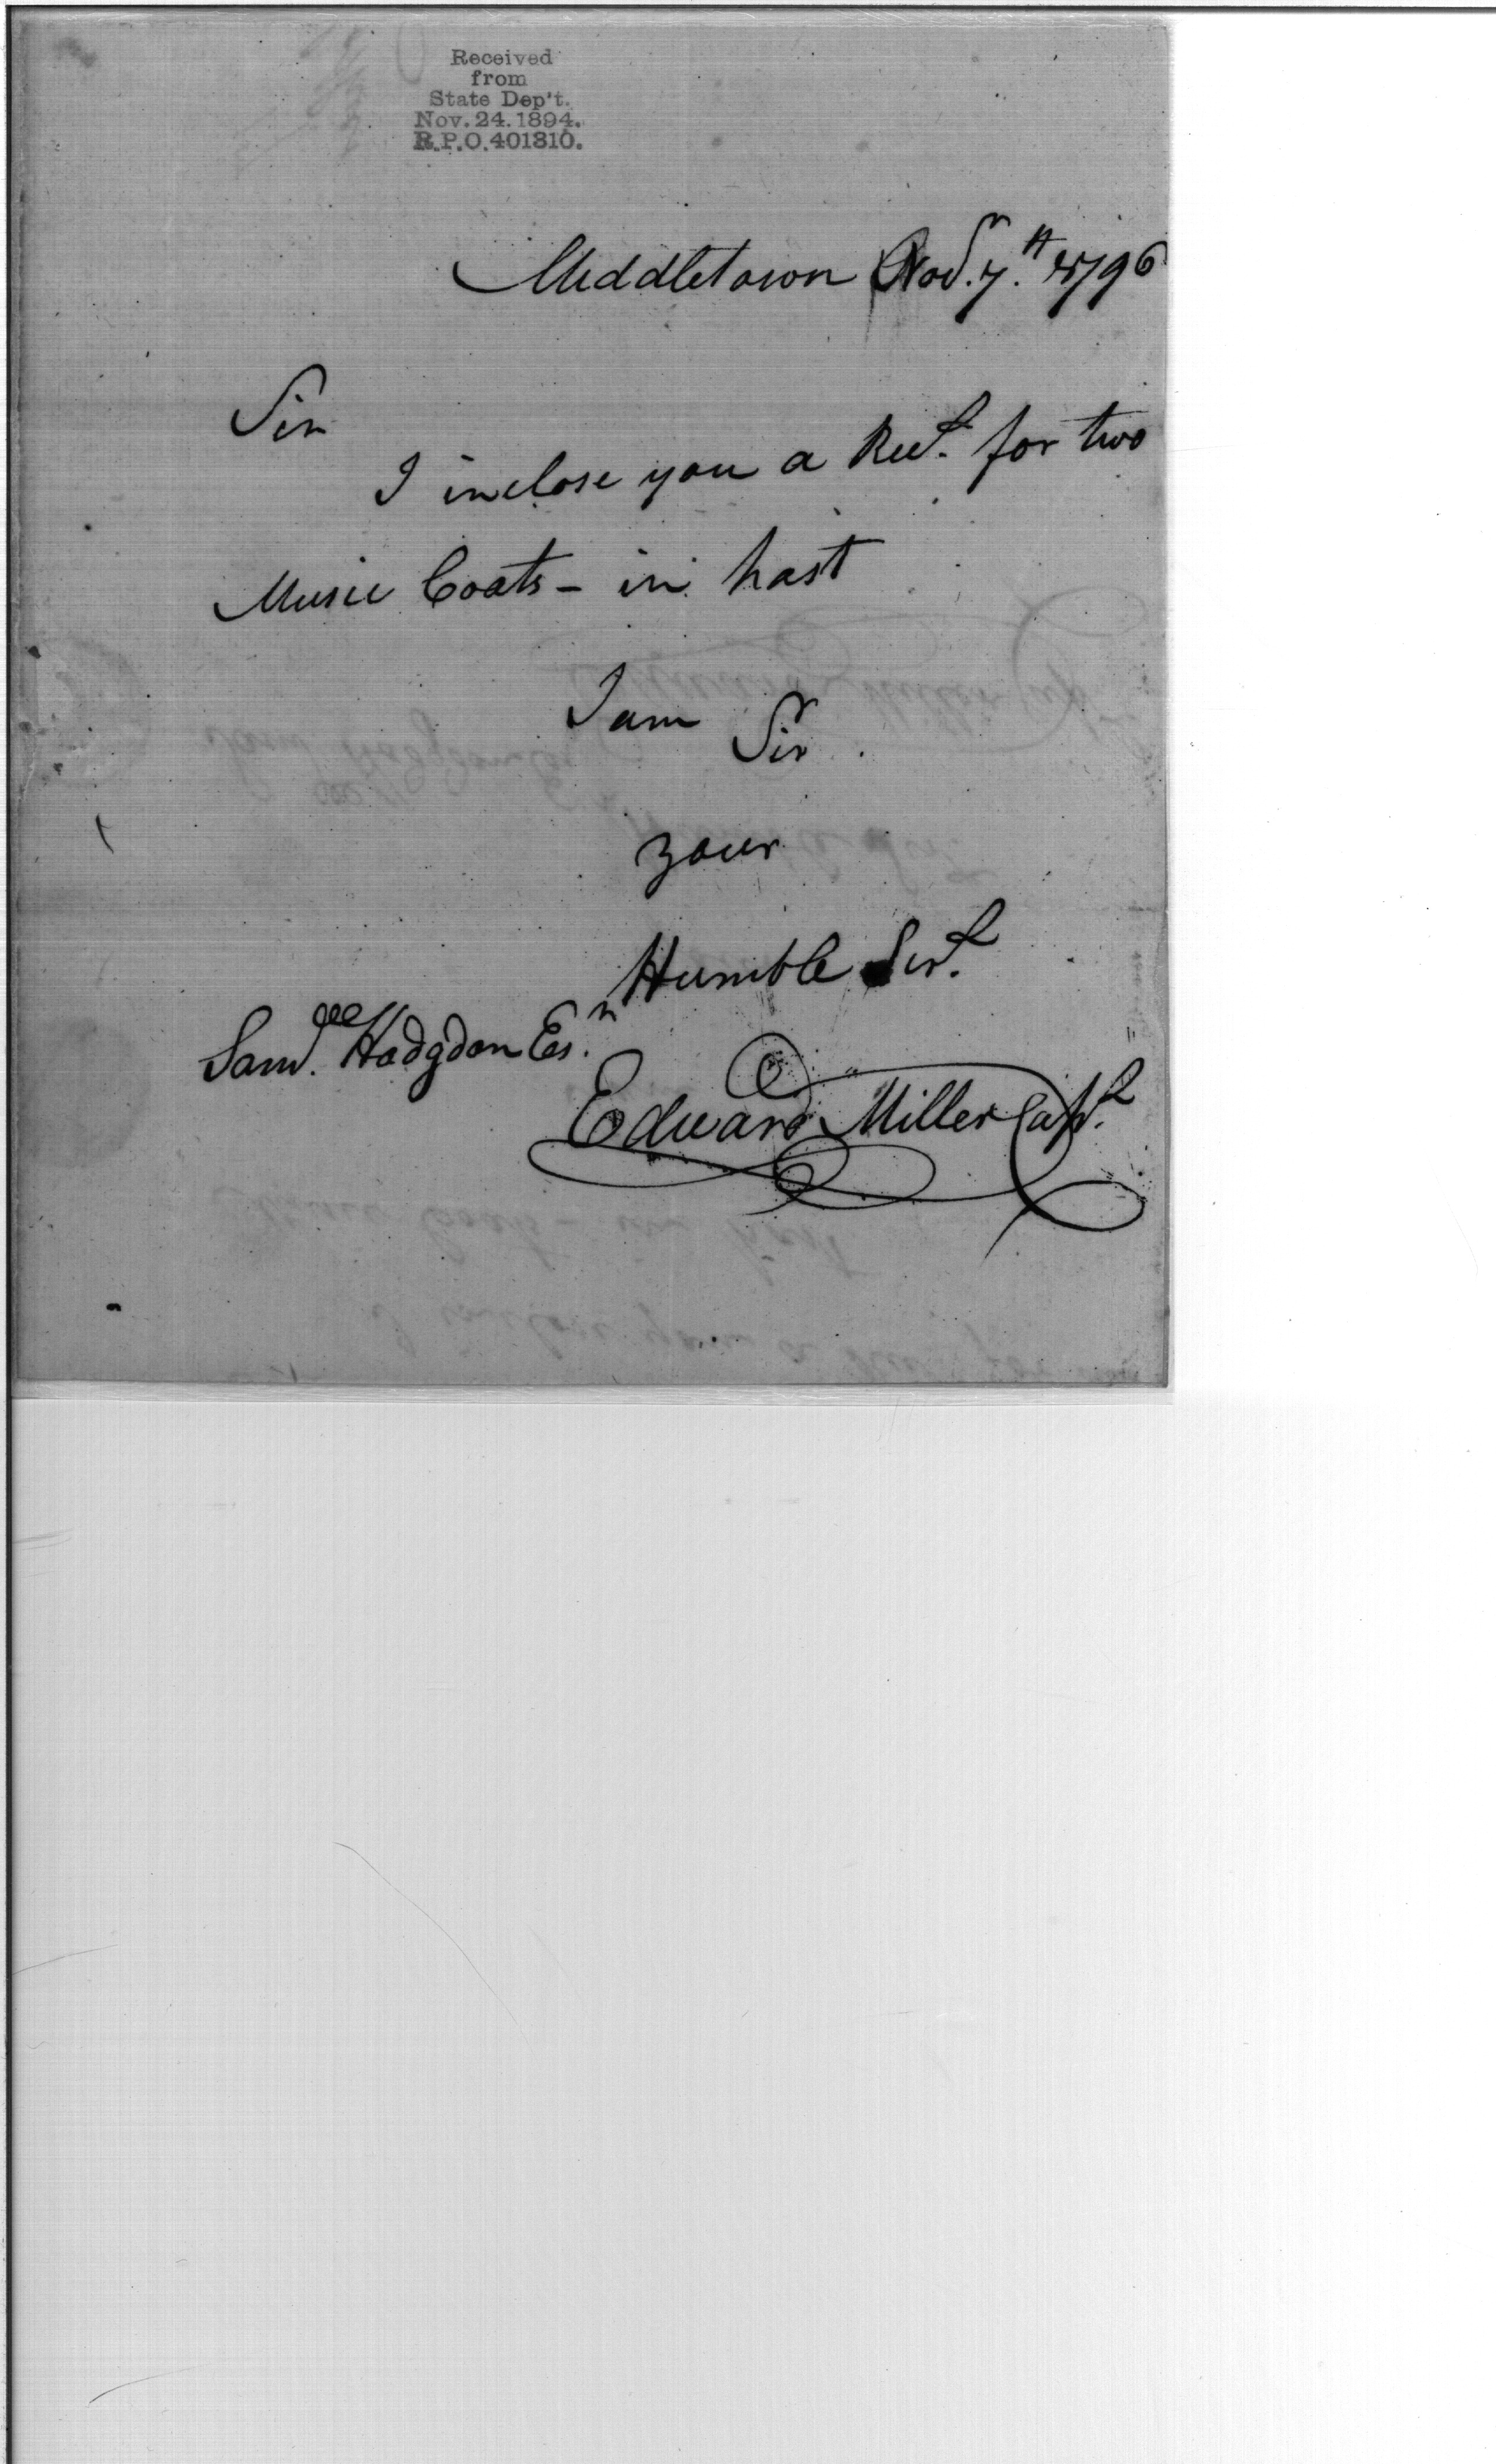 Received
from
State Dep't.
Nov. 24. 1894.
R.P.O. 401310.
Middletown Novr. 7th 1796
Sir
I inclose you a Rect. for two
Music Coats - in hast
I am
Sir
your
Humble Sert.
Saml. Hodgdon Esr.
Edward Miller Capt.